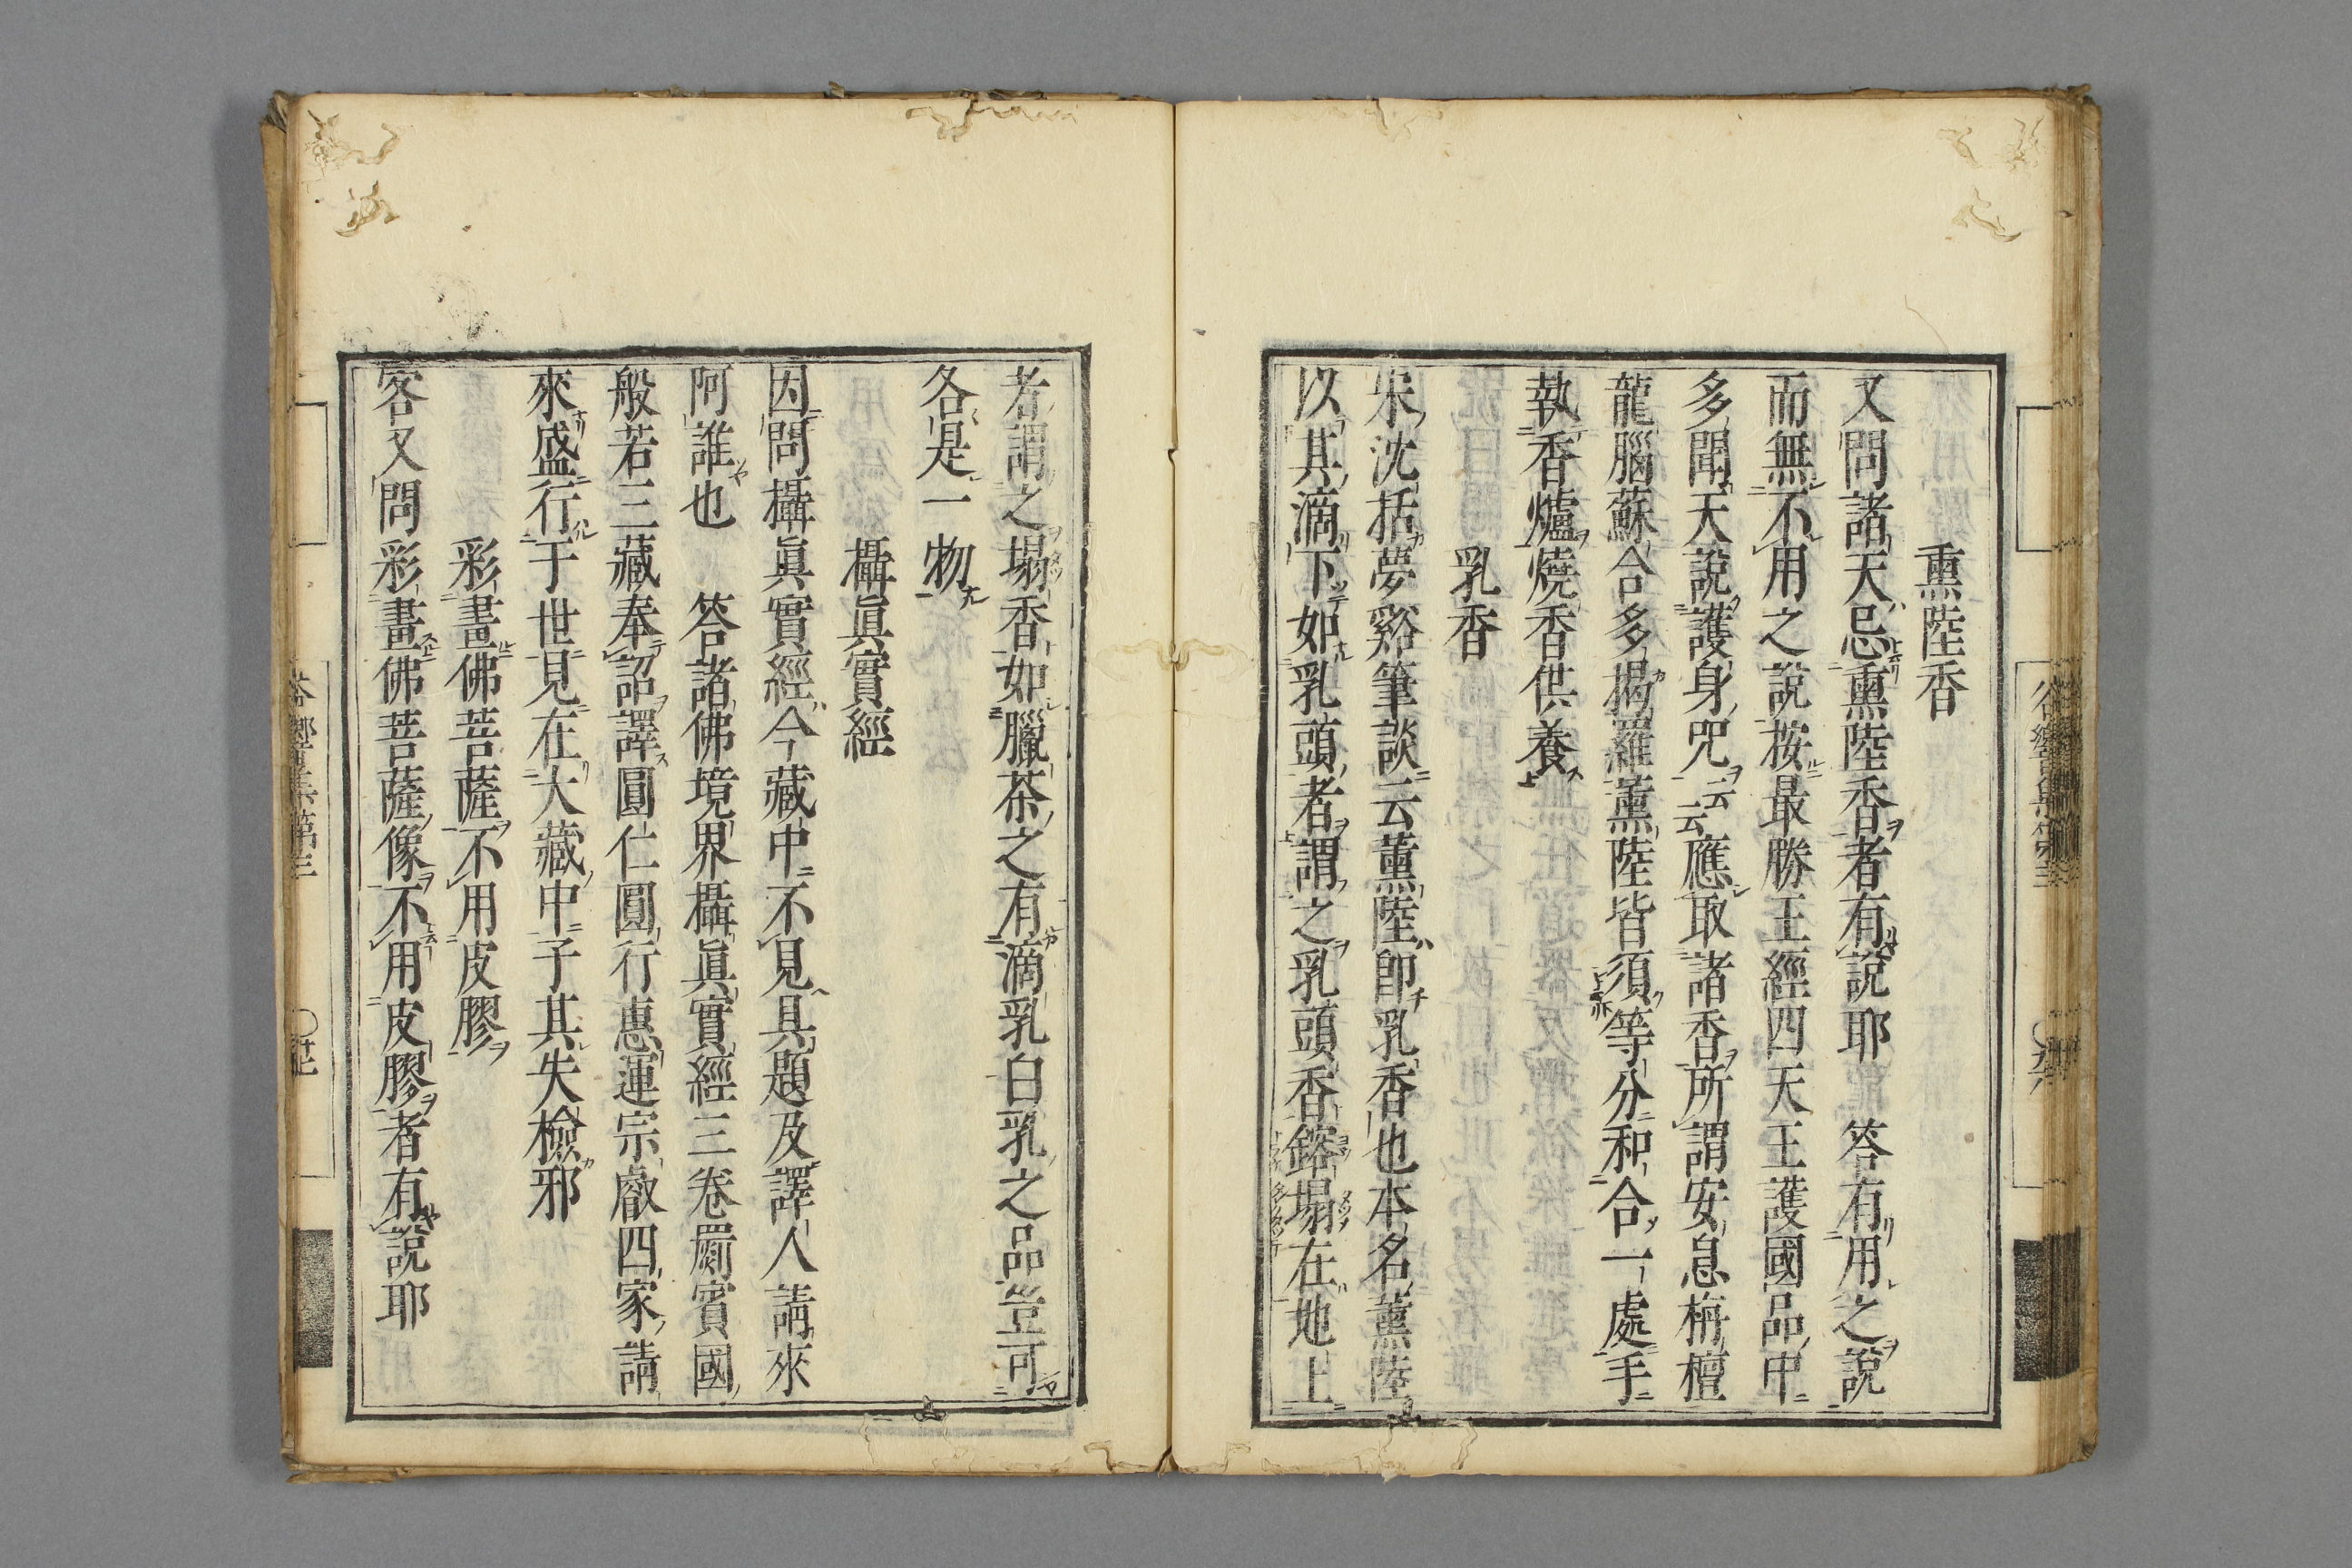 熏陸香
又問諸天忌熏陸香者有說耶　答有用之說
而無不用之說按最勝王經四天王護國品中
多聞天說護身咒云云應取諸香所謂安息栴檀
龍腦蘇合多揭羅薰陸皆須等分和合一處手
執香爐燒香供養
乳香
宋沈括夢谿筆談云薰陸即乳香也本名薰陸
以其滴下如乳頭者謂之乳頭香鎔塌在地上
者謂之塌香如臘茶之有滴乳白乳之品豈可
各是一物
攝眞實經
因問攝眞實經今藏中不見具題及譯人請來
阿誰也　答諸佛境界攝眞實經三卷罽賓國
般若三藏奉詔譯圓仁圓行惠運宗叡四家請
來盛行于世見在大藏中子其失檢邪
彩畫佛菩薩不用皮膠
客又問彩畫佛菩薩像不用皮膠者有說耶